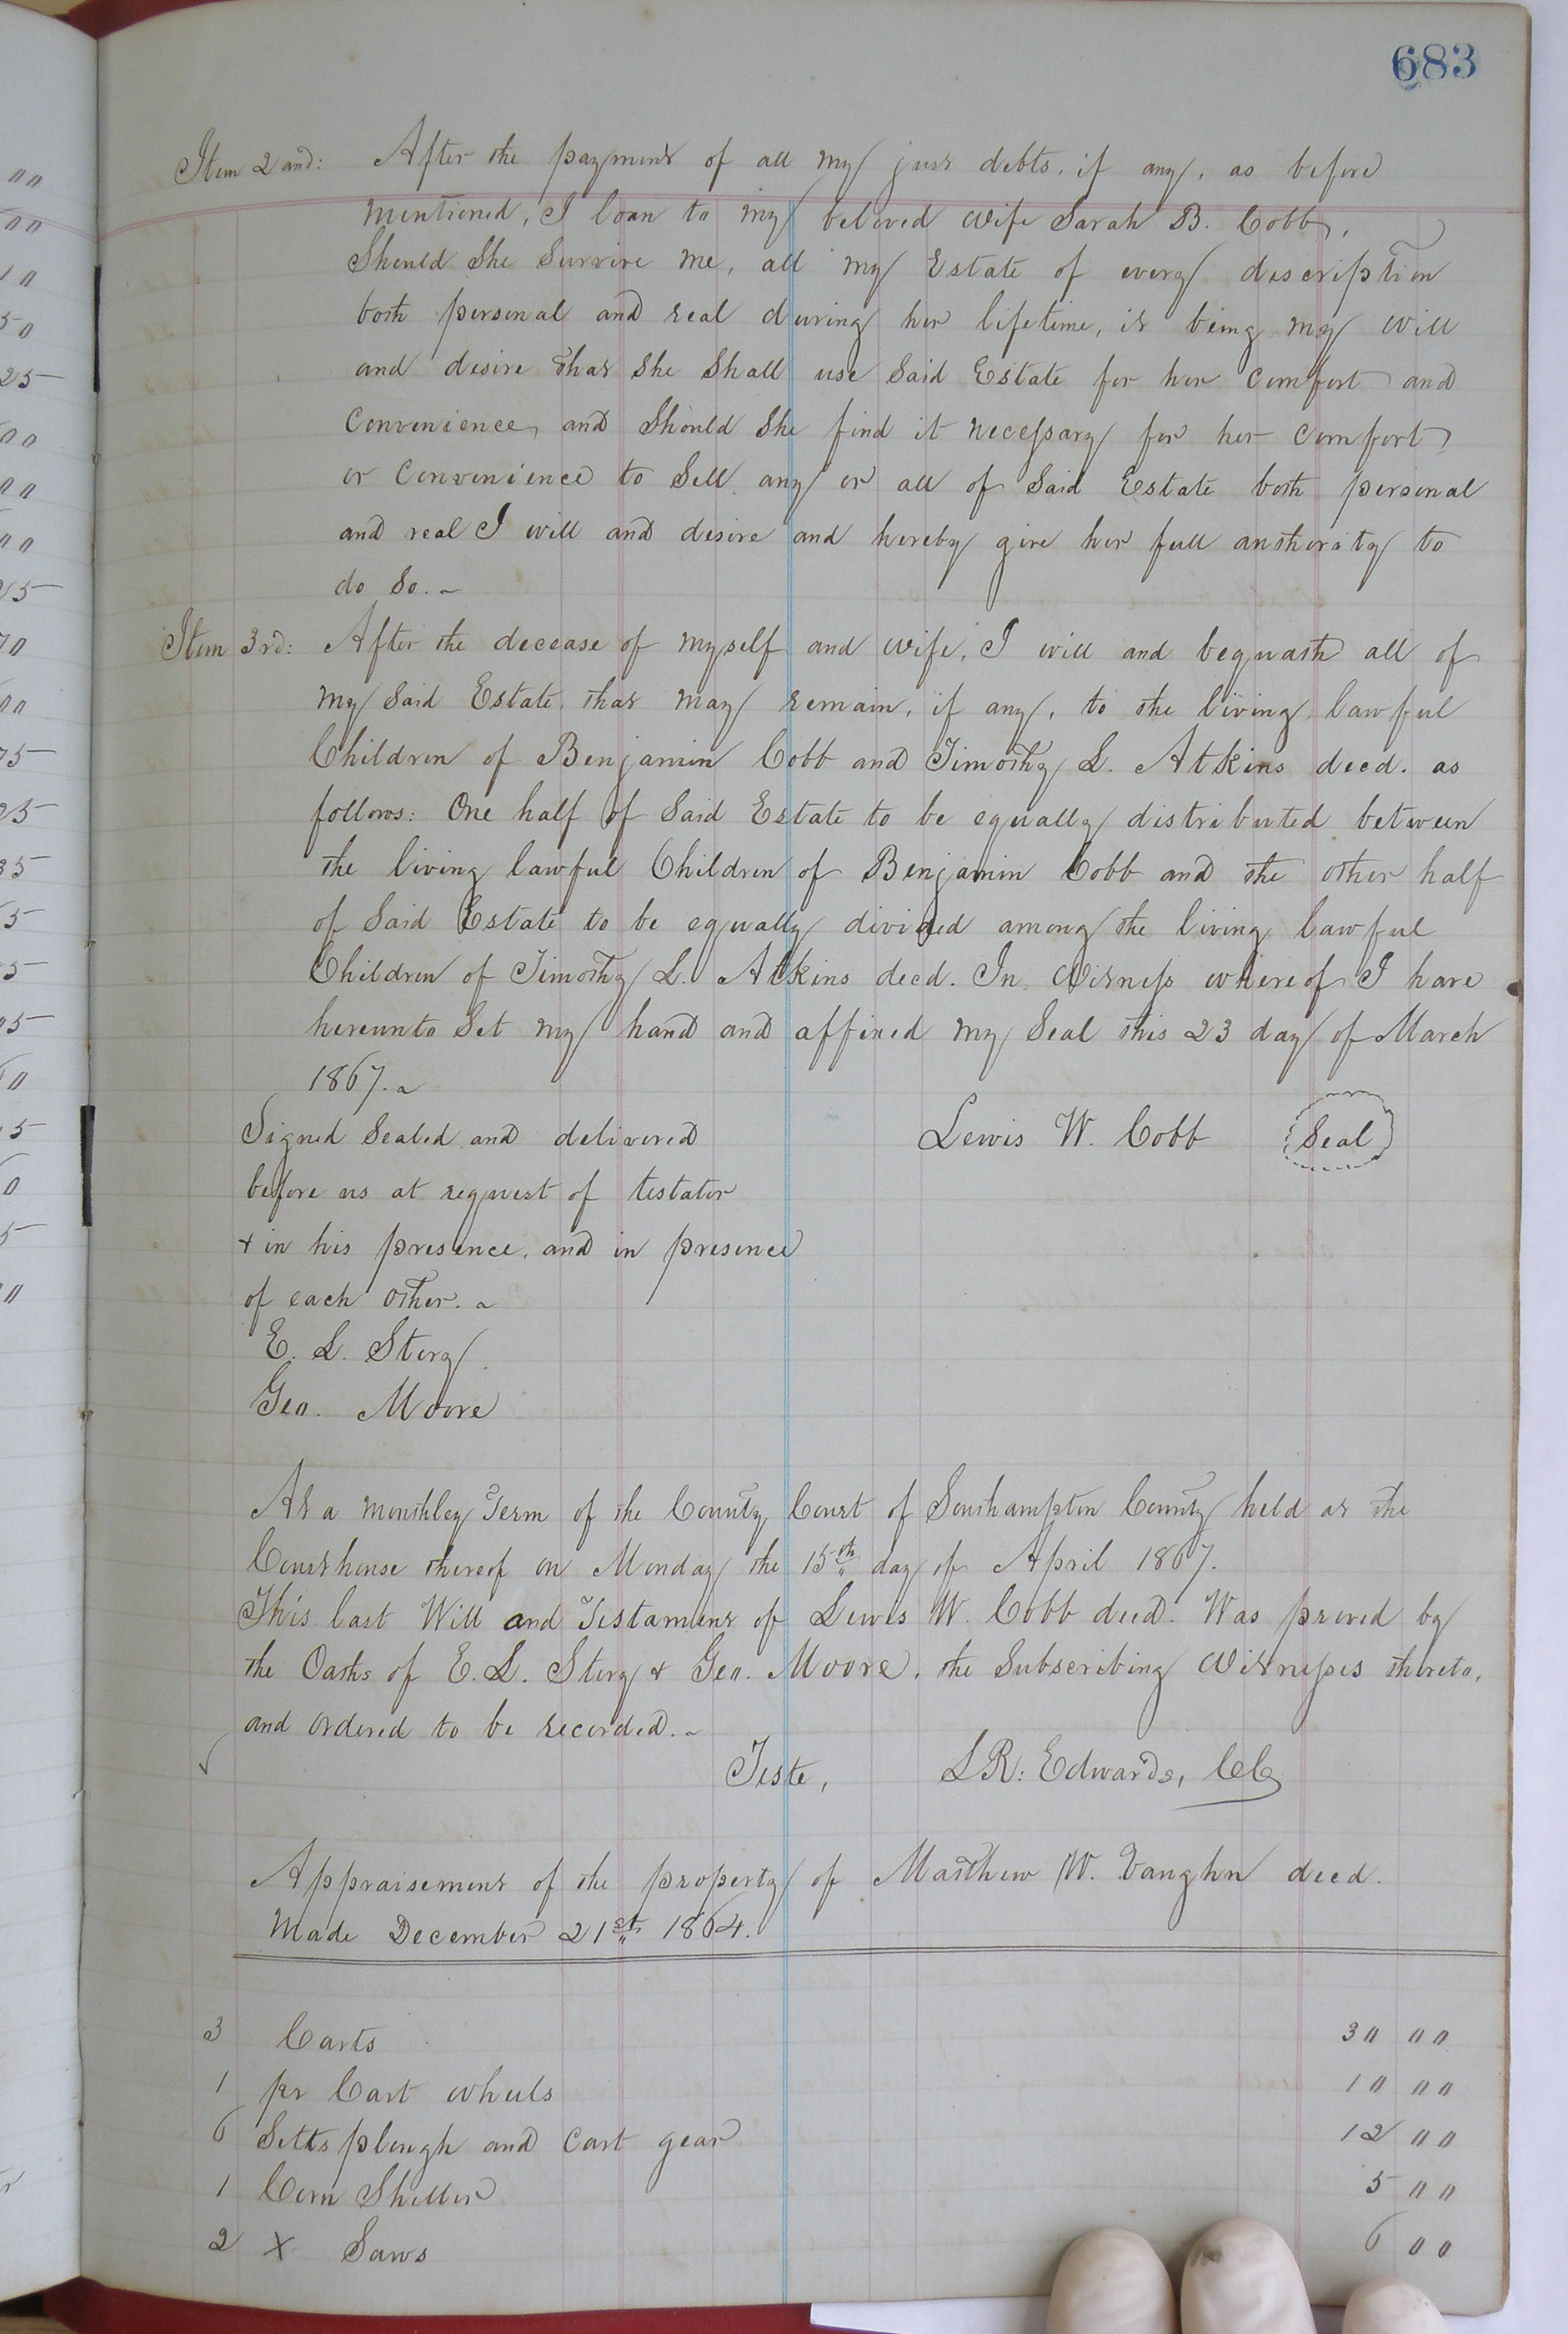 683
Item 2nd: After the payment of all my just debts, if any, as before
mentioned, I loan to my beloved wife Sarah B. Cobb,
Should She Survive me, all my Estate of every description
both personal and real during her lifetime, it being my will
and desire that she shall use said Estate for her comfort and
convenience, and Should She find it necessary for her comfort
or convenience to Sell any or all of Said Estate both personal
and real I will and desire and hereby give her full authority to
do So. ~
Item 3rd: After the decease of myself and wife, I will and bequath all of
my Said Estate that may remain, if any, to the living lawful
Children of Benjamin Cobb and Timothy L. Atkins decd. as
follows: One half of Said Estate to be equally distributed between
the living lawful Children of Benjamin Cobb and the other half
of Said Estate to be equally divided among the living lawful
Children of Timothy L. Atkins decd. In Witness whereof I have
hereunto Set my hand and affixed my Seal this 23 day of March
1867. ~
Signed Sealed and delivered Lewis W. Cobb Seal
before us at request of testator
+ in his presence, and in presence
of each other. ~
E. L. Story
Geo. Moore
At a monthley Term of the County Court of Southampton County held at the
Courthouse thereof on Monday the 15th day of April 1867.
This last Will and Testament of Lewis W. Cobb decd. Was proved by
the Oaths of E. L. Story + Geo. Moore, the Subscribing Witnesses thereto,
and ordered to be recorded. ~
Teste, L R: Edwards, CC
Appraisement of the property of Matthew W. Vaughn decd.
Made December 21st 1864.
3 Carts 30 00
1 pr Cart wheels 10 00
6 Setts plough and cart gear 12 00
1 Corn Sheller 5 00
2 X Saws 6 00